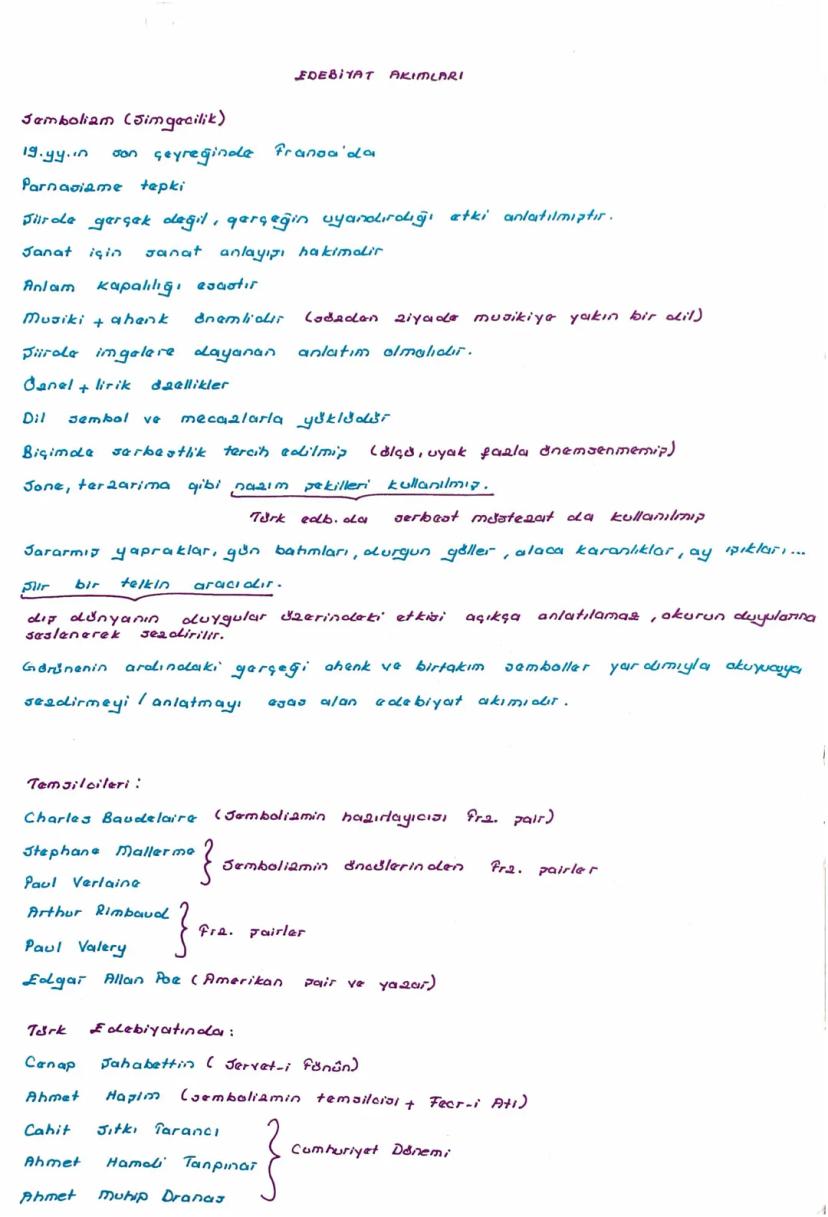 EDEBİYAT AKIMLARI
Sembolizm (Simgecilik)
19.yy.ın son çeyreğinde Fransa'da
Parnasizme tepki
Şiirde gerçek değil, gerçeğin uyandırdığı etki anlatılmıştır.
Sanat için sanat anlayışı hakimdir
Anlam kapalılığı esastır
Musiki + ahenk önemlidir (sözden ziyade musikiye yakın bir dil)
Şiirde imgelere dayanan anlatım olmalıdır.
Öznel + lirik özellikler
Dil sembol ve mecazlarla yüklüdür
Biçimde serbestlik tercih edilmiş (ölçü, uyak fazla önemsenmemiş)
Sone, terzarima gibi nazım şekilleri kullanılmış.
Türk edb.da serbest müstezat da kullanılmış
Sararmış yapraklar, gün batımları, durgun göller, alaca karanlıklar, ay ışıkları...
Şiir bir telkin aracıdır.
dış dünyanın duygular üzerindeki etkisi açıkça anlatılamaz, okurun duyularına
seslenerek sezdirilir.
Görünenin ardındaki gerçeği ahenk ve birtakım semboller yardımıyla okuyucuya
sezdirmeyi / anlatmayı esas alan edebiyat akımıdır.
Temsilcileri:
Charles Baudelaire (Sembolizmin hazırlayıcısı Frz. şair)
Stephane Mallerme
Paul Verlaine
} Sembolizmin öncülerinden Frz. şairler
Arthur Rimbaud
Paul Valery
} Frz. şairler
Edgar Allan Poe (Amerikan şair ve yazar)
Türk Edebiyatında:
Cenap Şahabettin (Servet-i Fünûn)
Ahmet Haşim (sembolizmin temsilcisi + Fecr-i Ati)
Cahit Sıtkı Tarancı
Ahmet Hamdi Tanpınar
Ahmet Muhip Dranas
} Cumhuriyet Dönemi